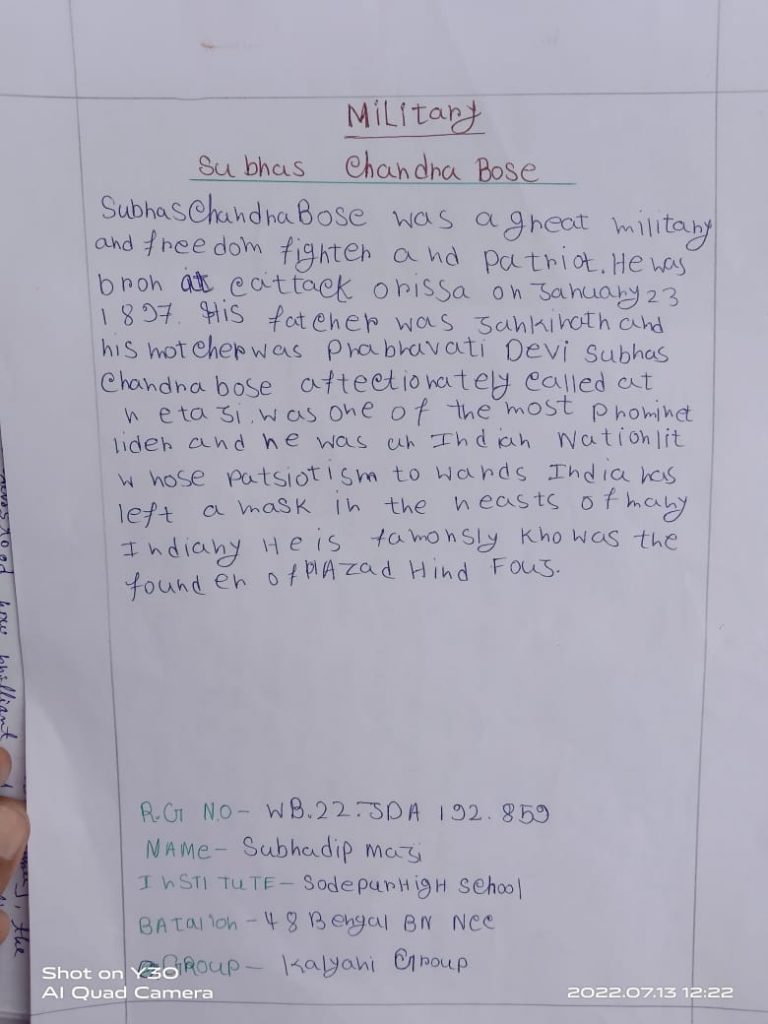 Military
Subhas Chandra Bose
Subhas Chandra Bose was a great military
and freedom fighter and patriot. He was
bron at cattack orissa on January 23
1897. His fatcher was Jankinath and
his motcher was Prabhavati Devi Subhas
Chandra bose affectionately called at
netaji. was one of the most prominet
lider and he was an Indian Nationlit
whose patsiotism towards India has
left a mask in the heasts of many
Indiany He is famonsly kno was the
founder of Azad Hind Fouj.
R.G NO- WB.22.JDA 192.859
NAME- Subhadip maji
INSTITUTE- Sodepur High School
BATALION - 48 Bengal BN NCC
GROUP- Kalyani Group
Shot on Y30
AI Quad Camera
2022.07.13 12:22